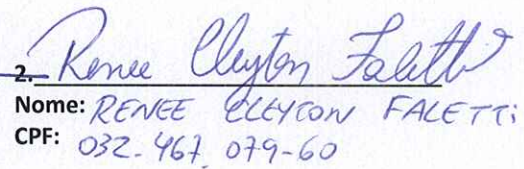 2. Renee Cleyton Faletti
Nome: RENEE CLEYTON FALETTi
CPF: 032.467.079-60